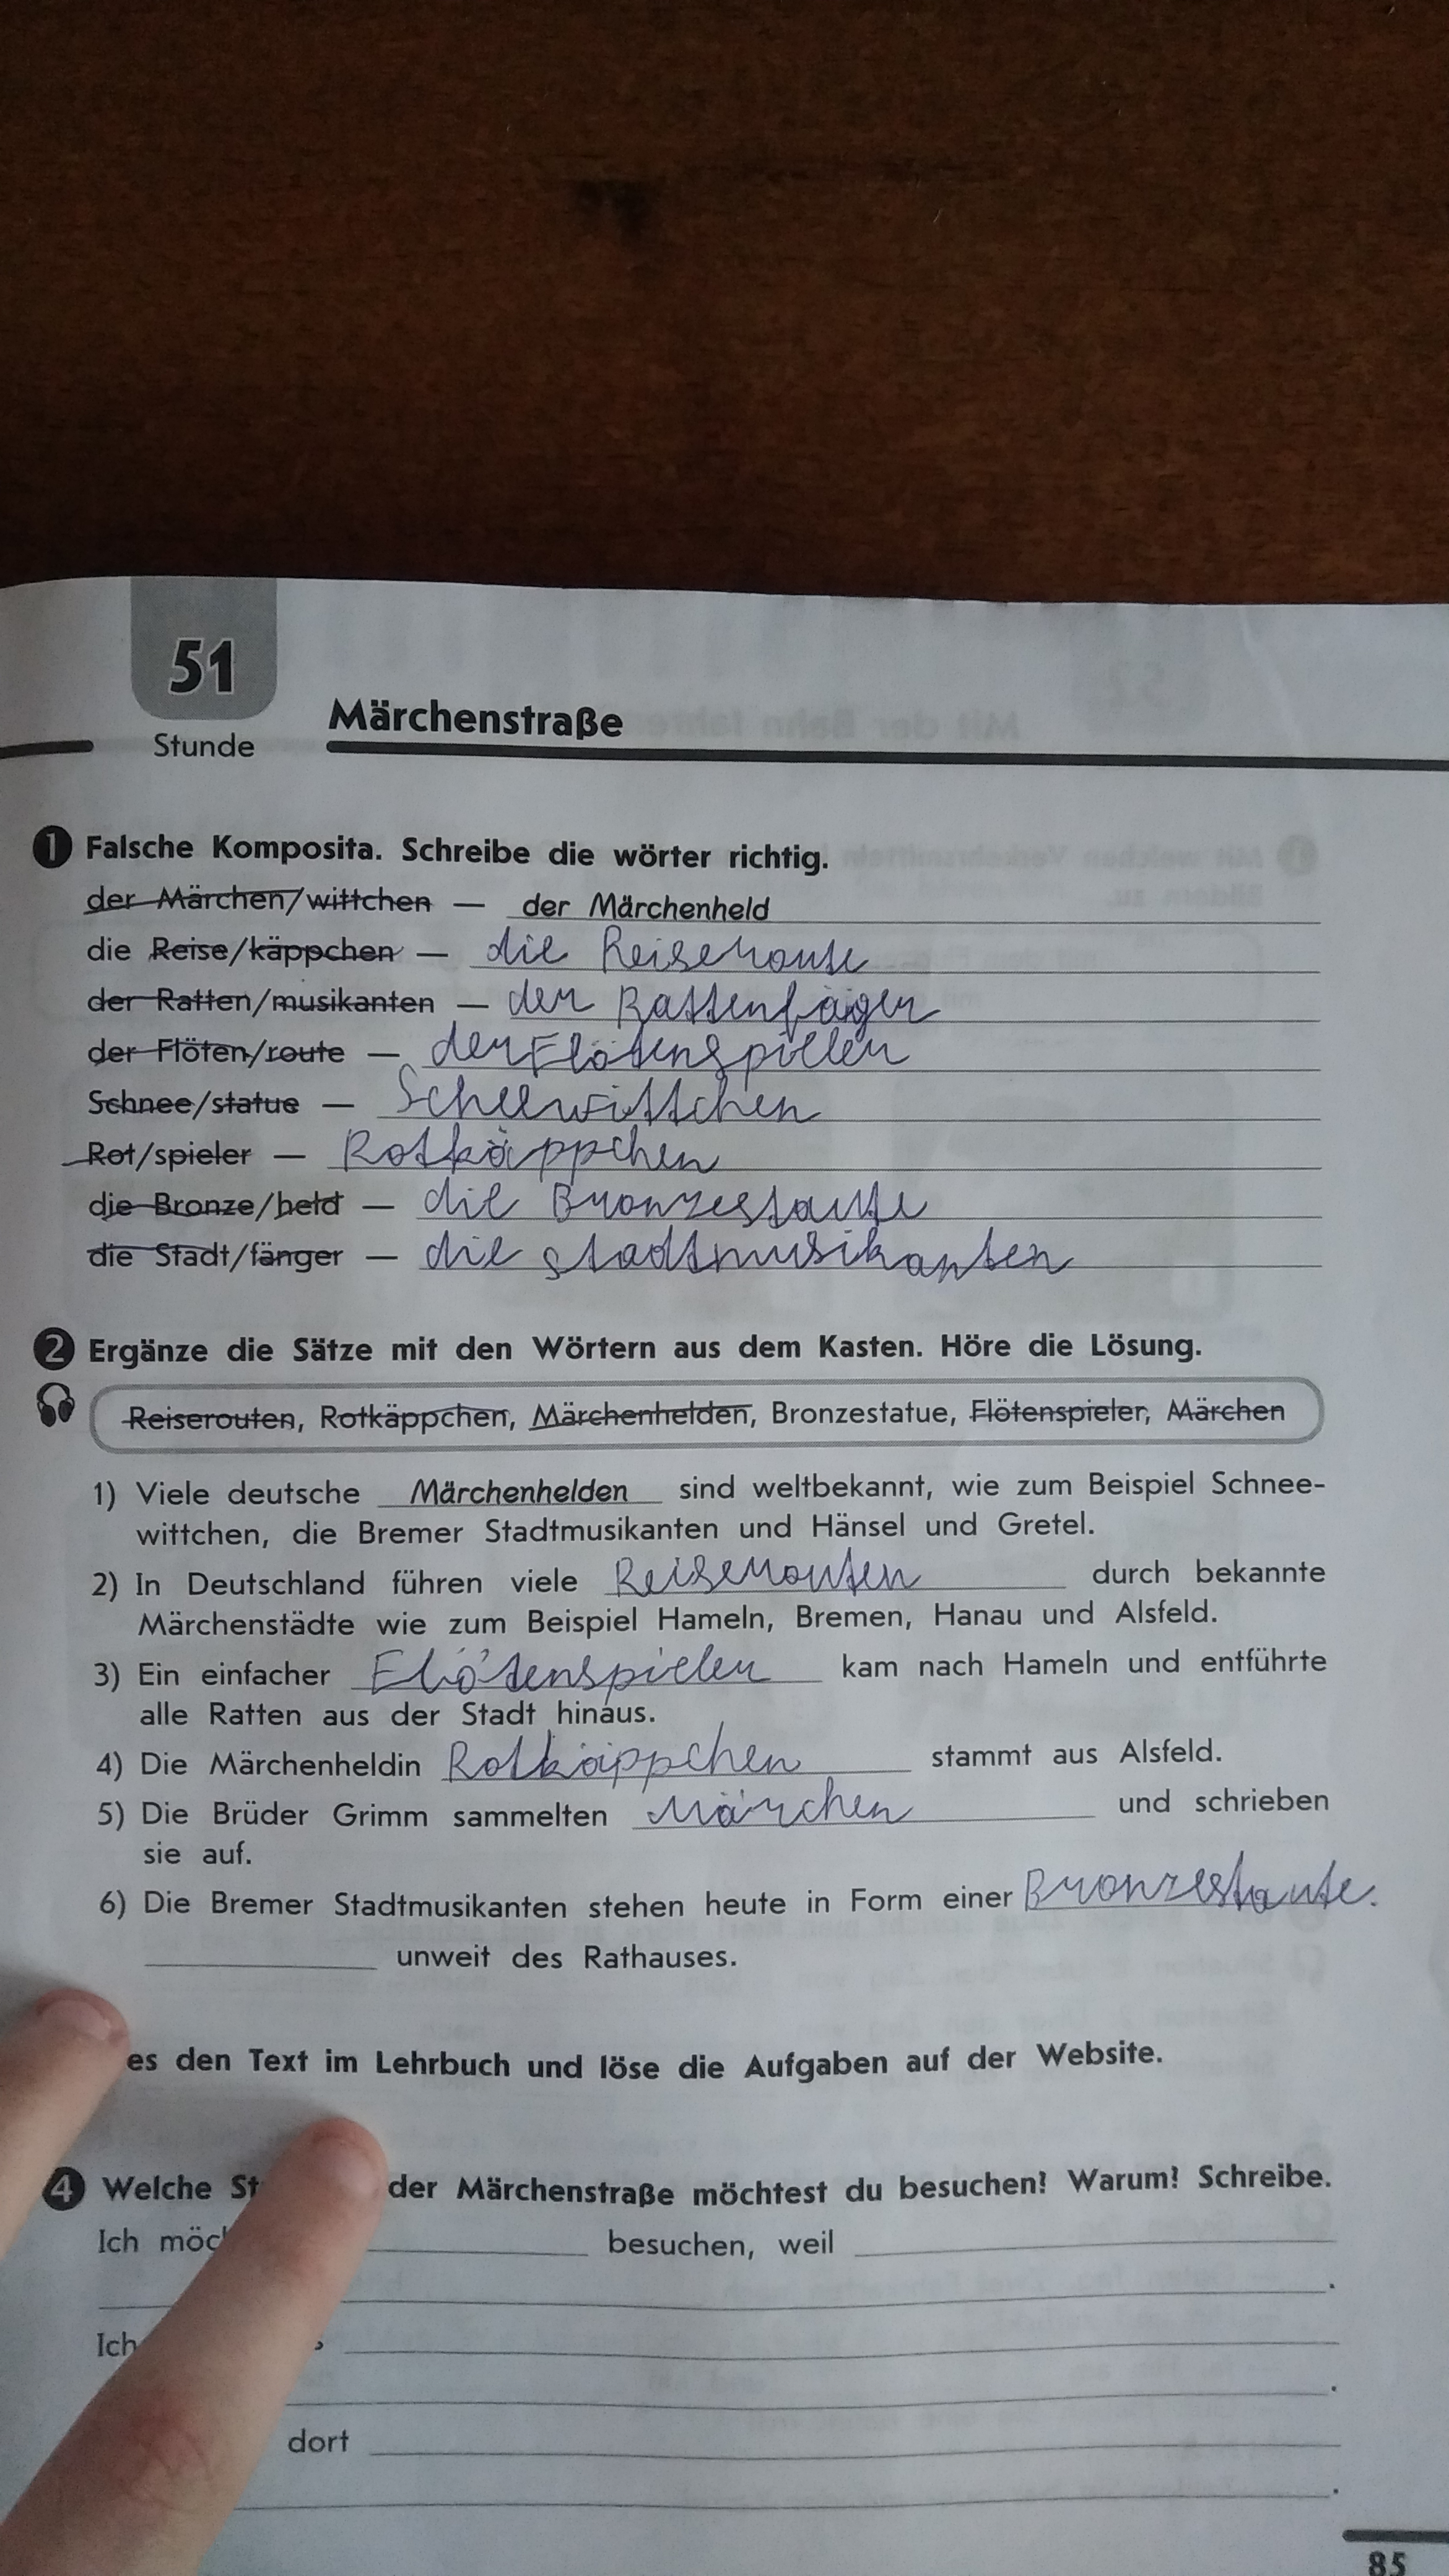 51
Stunde
Märchenstraße
1 Falsche Komposita. Schreibe die wörter richtig.
der Märchen/wittchen — der Märchenheld
die Reise/käppchen — die Reiseroute
der Ratten/musikanten — der Rattenfäger
der Flöten/route — der Flötenspieler
Schnee/statue — Scheewittchen
Rot/spieler — Rotkäppchen
die Bronze/held — die Bronzestaute
die Stadt/fänger — die stadtmusikanten
2 Ergänze die Sätze mit den Wörtern aus dem Kasten. Höre die Lösung.
Reiserouten, Rotkäppchen, Märchenhelden, Bronzestatue, Flötenspieler, Märchen
1) Viele deutsche Märchenhelden sind weltbekannt, wie zum Beispiel Schnee-
wittchen, die Bremer Stadtmusikanten und Hänsel und Gretel.
2) In Deutschland führen viele Reiserouten durch bekannte
Märchenstädte wie zum Beispiel Hameln, Bremen, Hanau und Alsfeld.
3) Ein einfacher Flötenspieler kam nach Hameln und entführte
alle Ratten aus der Stadt hinaus.
4) Die Märchenheldin Rotkäppchen stammt aus Alsfeld.
5) Die Brüder Grimm sammelten Märchen und schrieben
sie auf.
6) Die Bremer Stadtmusikanten stehen heute in Form einer Bronzestaute.
unweit des Rathauses.
es den Text im Lehrbuch und löse die Aufgaben auf der Website.
4 Welche St der Märchenstraße möchtest du besuchen? Warum? Schreibe.
Ich möc besuchen, weil
.
Ich
.
dort
.
85